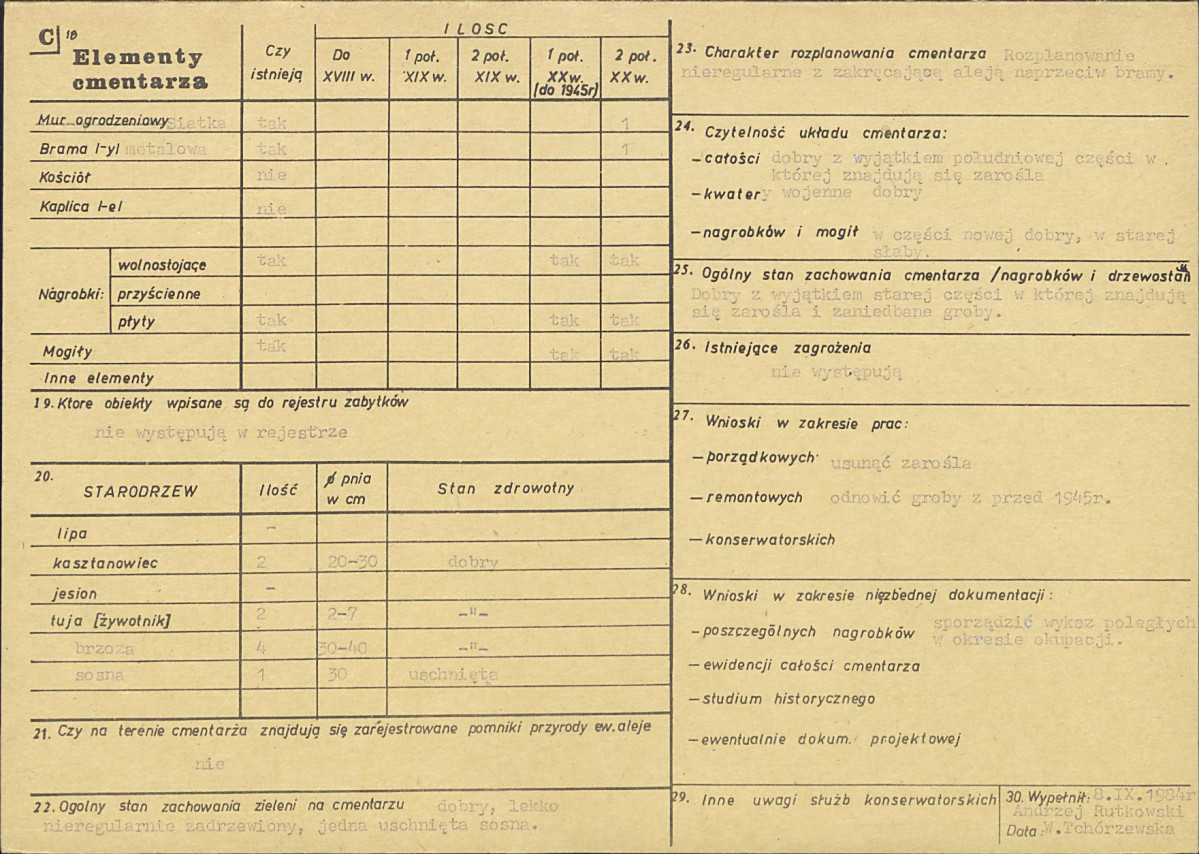 C 18
Elementy cmentarza
Czy istnieją
ILOSC
Do XVIII w.
1 poł. XIX w.
2 poł. XIX w.
1 poł. XX w. (do 1945r)
2 poł. XX w.
Mur ogrodzeniowy Siatka tak 1
Brama l-yl metalowa tak 1
Kościół nie
Kaplica l-el nie
Nagrobki:
wolnostojące tak tak tak
przyścienne
płyty tak tak tak
Mogiły tak tak tak
Inne elementy
19. Ktore obiekty wpisane są do rejestru zabytków
nie występują w rejestrze
20. STARODRZEW Ilość ø pnia w cm Stan zdrowotny
lipa -
kasztanowiec 2 20-30 dobry
jesion -
tuja [żywotnik] 2 2-7 -"-
brzoza 4 30-40 -"-
sosna 1 30 uschnięta
21. Czy na terenie cmentarza znajdują się zarejestrowane pomniki przyrody ew. aleje
nie
22. Ogolny stan zachowania zieleni na cmentarzu dobry, lekko
nieregularnie zadrzewiony, jedna uschnięta sosna.
23. Charakter rozplanowania cmentarza Rozplanowanie
nieregularne z zakręcającą aleją naprzeciw bramy.
24. Czytelność układu cmentarza:
- całości dobry z wyjątkiem południowej części w
której znajdują się zarośla
- kwatery wojenne dobry
- nagrobków i mogił w części nowej dobry, w starej
słaby.
25. Ogólny stan zachowania cmentarza /nagrobków i drzewostan
Dobry z wyjątkiem starej części w której znajdują
się zarośla i zaniedbane groby.
26. Istniejące zagrożenia
nie występują
27. Wnioski w zakresie prac:
- porządkowych usunąć zarośla
- remontowych odnowić groby z przed 1945r.
- konserwatorskich
28. Wnioski w zakresie niezbednej dokumentacji:
- poszczególnych nagrobków sporządzić wykaz poległych
w okresie okupacji.
- ewidencji całości cmentarza
- studium historycznego
- ewentualnie dokum. projektowej
29. Inne uwagi służb konserwatorskich
30. Wypełnił: 8.IX.1984r
Andrzej Rutkowski
Data: W.Tchórzewska